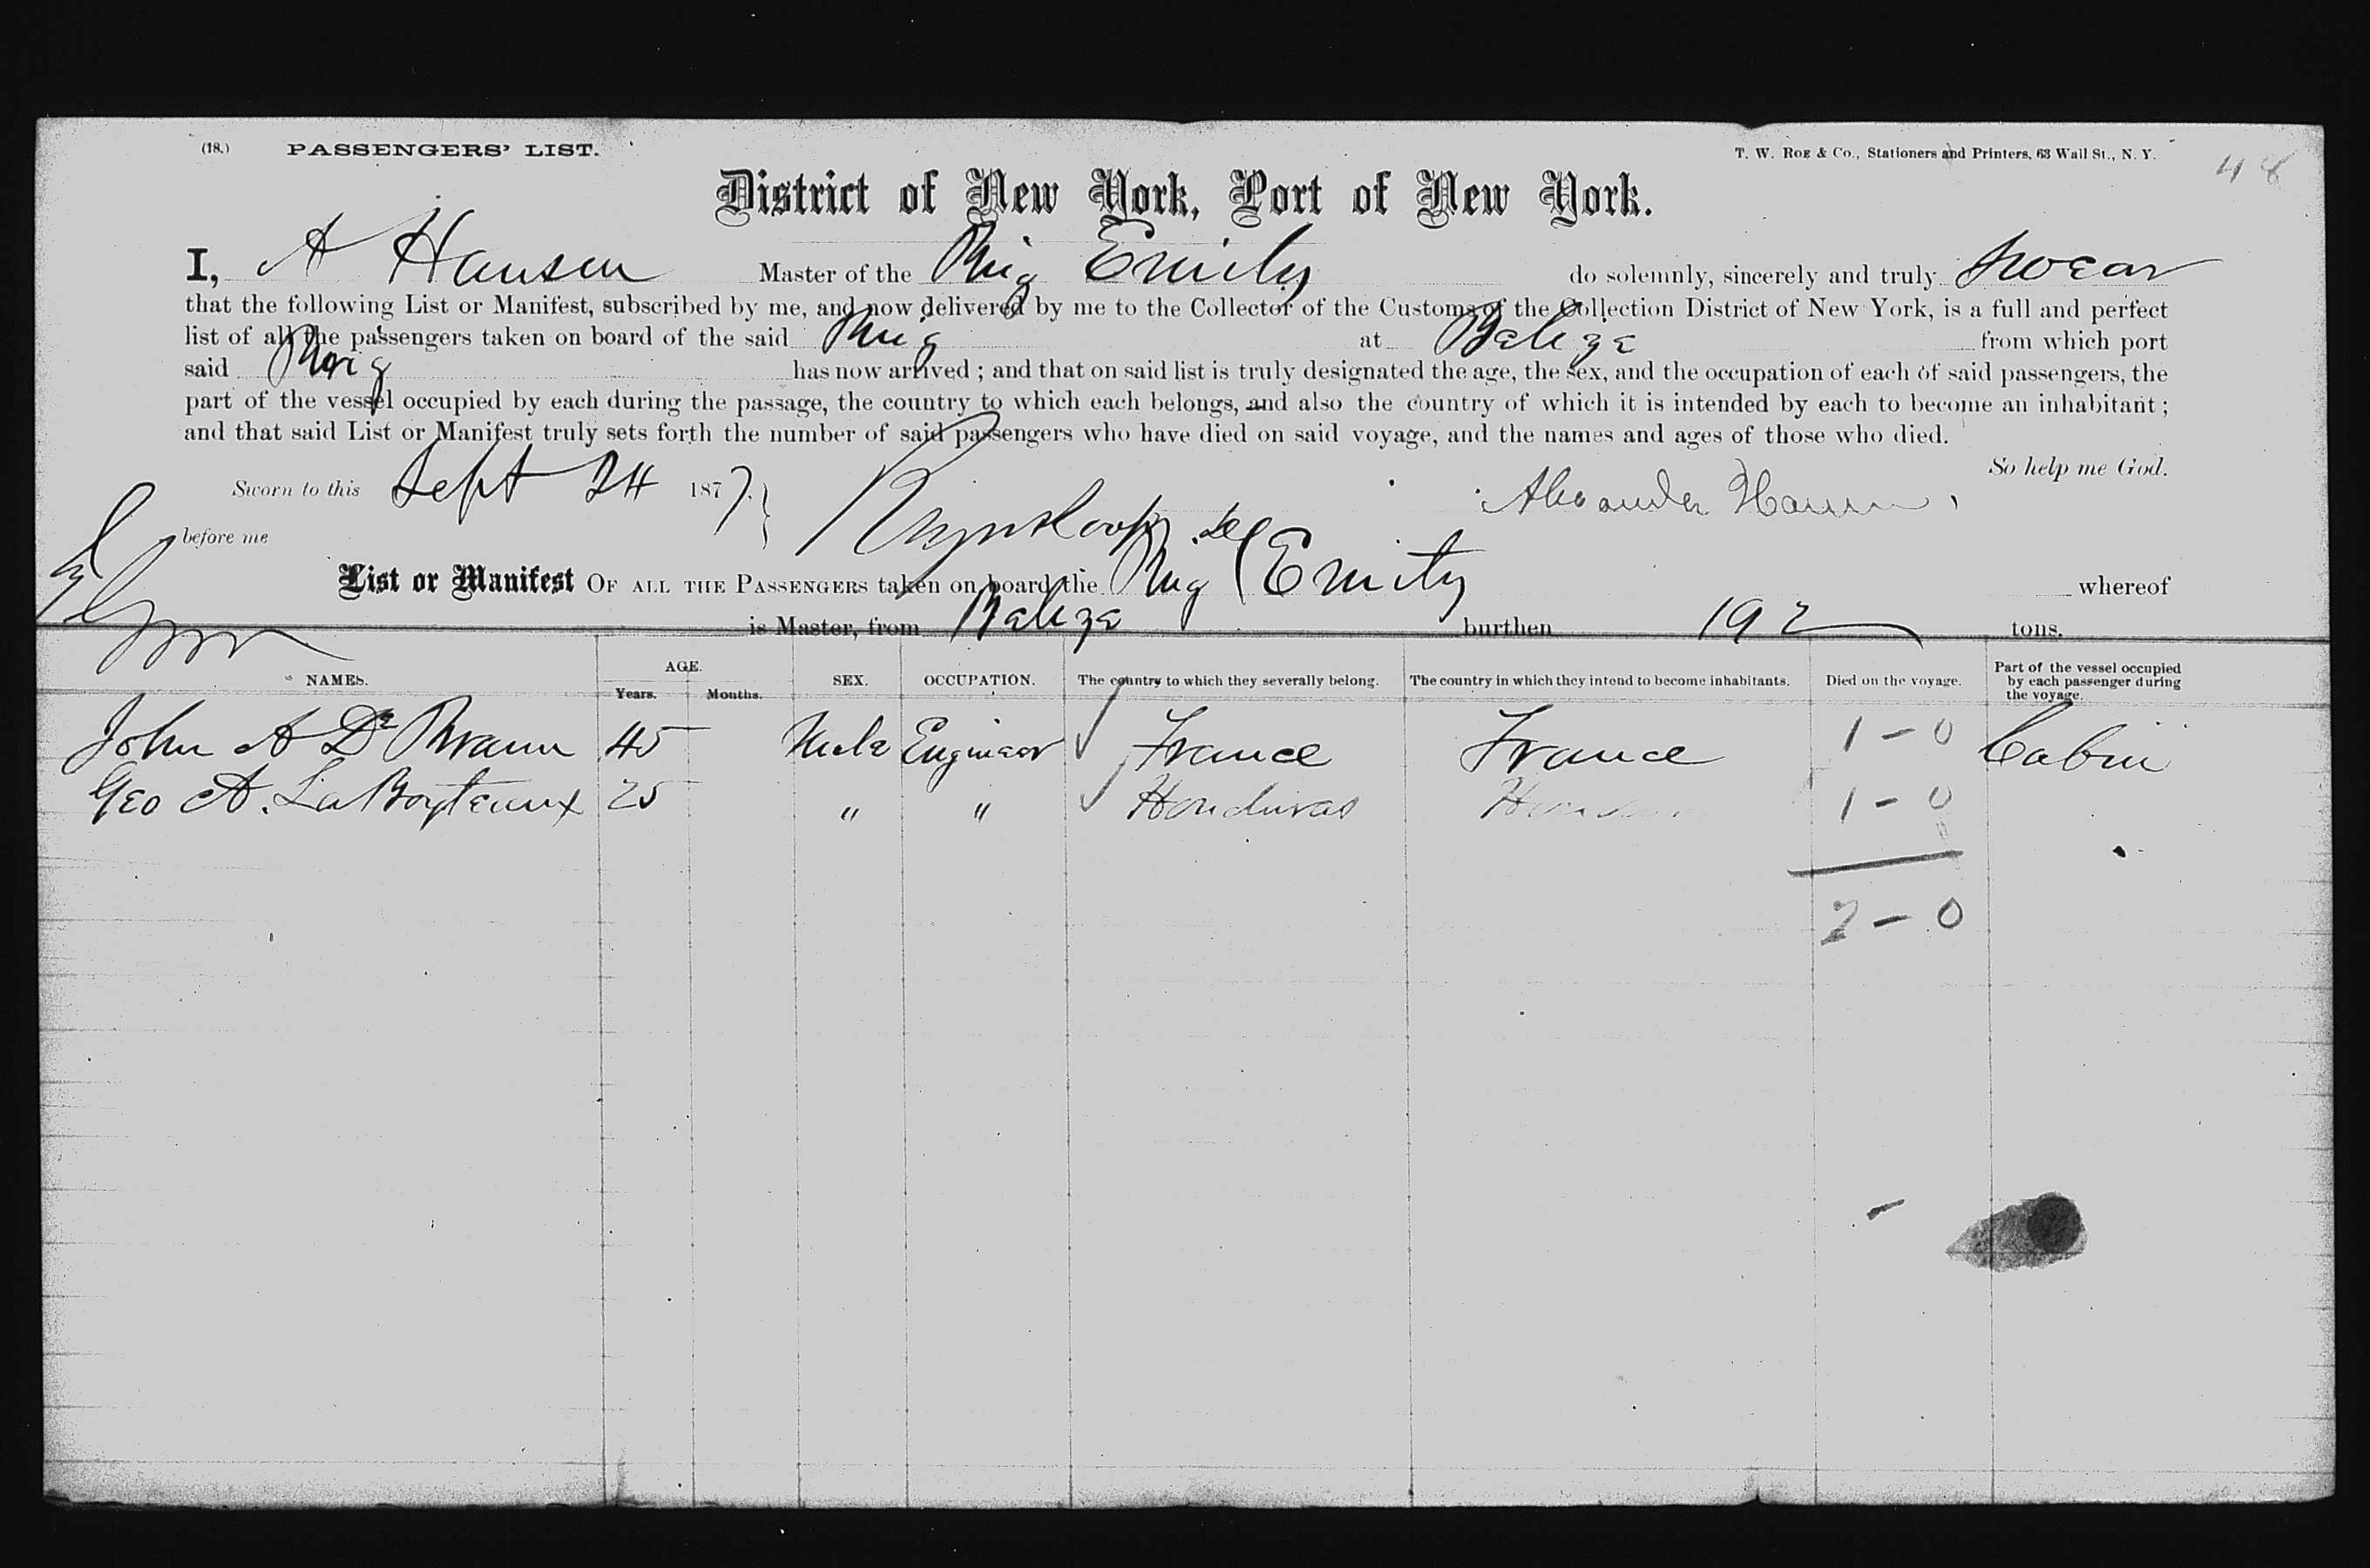 (18.) PASSENGERS' LIST. T. W. Roe & Co., Stationers and Printers, 63 Wall St., N. Y. 48
District of New York, Port of New York.
I, A Hansen Master of the Brig Emily do solemnly, sincerely and truly swear
that the following List or Manifest, subscribed by me, and now delivered by me to the Collector of the Customs of the Collection District of New York, is a full and perfect
list of all the passengers taken on board of the said Brig at Balize from which port
said Brig has now arrived ; and that on said list is truly designated the age, the sex, and the occupation of each of said passengers, the
part of the vessel occupied by each during the passage, the country to which each belongs, and also the country of which it is intended by each to become an inhabitant ;
and that said List or Manifest truly sets forth the number of said passengers who have died on said voyage, and the names and ages of those who died.
So help me God.
Sworn to this Sept 24 1877. Alexander Hansen
before me
List or Manifest OF ALL THE PASSENGERS taken on board the Brig Emily whereof
is Master, from Balize burthen 192 tons.
NAMES. AGE. Years. Months. SEX. OCCUPATION. The country to which they severally belong. The country in which they intend to become inhabitants. Died on the voyage. Part of the vessel occupied by each passenger during the voyage.
John A De Braun 45 Male Engineer France France 1-0 Cabin
Geo A. LaBoyteaux 25 " " Honduras 1-0
2-0